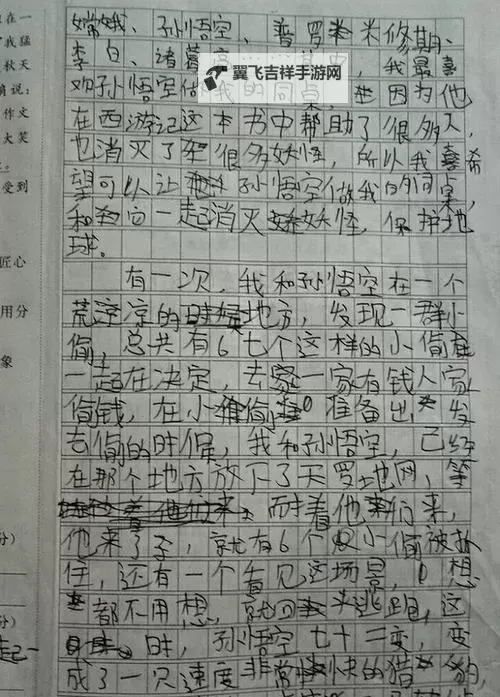 嫦娥、孙悟空、普罗米修斯、
李白、诸葛亮
我最喜
欢孙悟空做我的同桌,因为他
翼飞吉祥手游网
在西游记这本书中帮助了很多人,
也消灭了很多妖怪,所以我希
望可以让孙悟空做我的同桌,
和它一起消灭妖怪,保护地
球。
有一次,我和孙悟空在一个
荒凉的地方,发现一群小
偷,总共有6七个这样的小偷在
一起在决定,去家一家有钱人家
偷钱,在小偷准备出发
去偷的时候,我和孙悟空,已经
在那个地方放下了天罗地网,等
着他们来,
他来了了,就有6个小偷被抓
住,还有一个看见这场景,想
都不用想,就回头逃跑,这
时,孙悟空七十二变,变
成了一只速度非常快的猎豹,
在一
了我猛
秋天
说:
作文
大笑
受到
匠心
用分
象
分)
分)